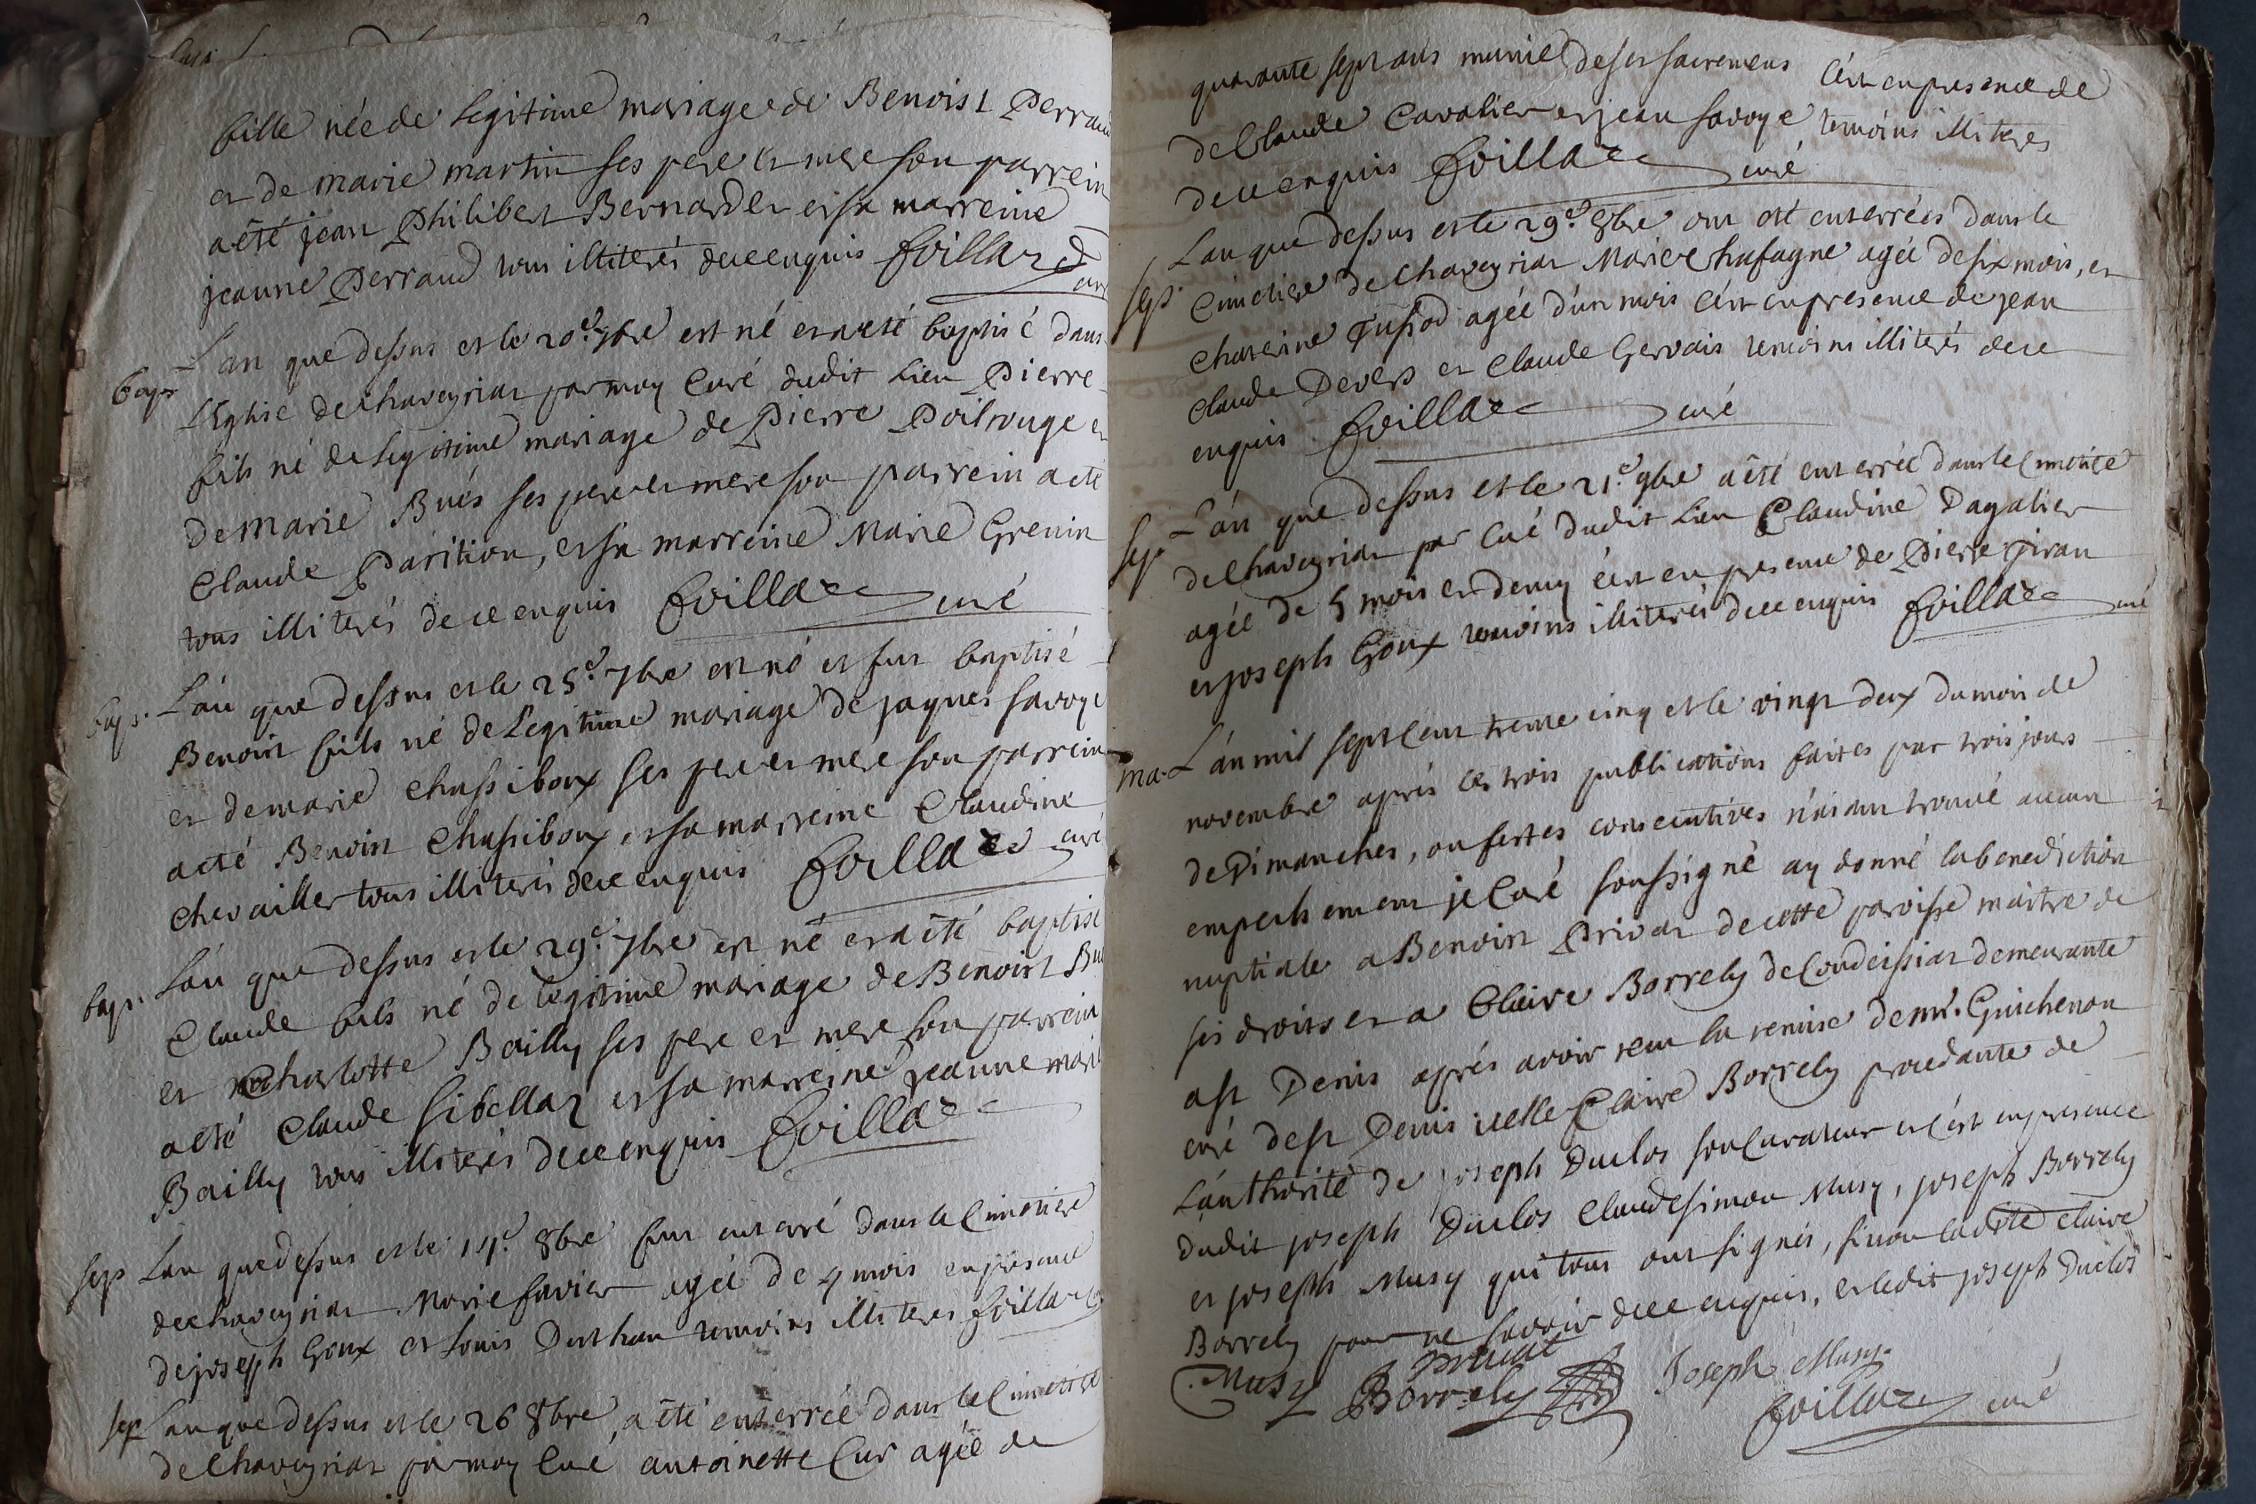 fille née de legitime mariage de Benoist Perraud
et de marie martin ses pere et mere son parrein
a été jean Philibert Bernarder et sa marreine
jeanne Perraud tous illiterés de ce enquis foillard curé
bap. L'an que dessus et le 20.e 7bre est né et a eté baptisé dans
l'Eglise de chaveyriat par moy Curé dudit Lieu Pierre
fils né de legitime mariage de Pierre Poilrouge et
de marie Bués ses pere et mere son parrein a eté
Claude Parition, et sa marreine Marie Grenin
tous illiterés de ce enquis foillard curé
bap. L'an que dessus et le 25.e 7bre est né et fut baptisé
Benoist fils né de Legitime mariage de jaques savoye
et de marie chassiboux ses pere et mere son parrein
a eté Benoist chassiboux, et sa marreine Claudine
chevailler tous illiterés de ce enquis foillard curé
bap. L'an que dessus et le 29.e 7bre est né et a été baptisé
Claude fils né de legitime mariage de Benoist
et charlotte Bailly ses pere et mere son parrein
a eté Claude sibellat et sa marreine jeanne marie
Bailly tous illiterés de ce enquis foillard
sep. L'an que dessus et le 14.e 8bre fut enterré dans le Cimetiere
de chaveyriat Marie favier agée de 4 mois en presence
de joseph Goux et Louis Durthan temoins illiteres foillard
sep. L'an que dessus et le 26 8bre, a été enterrée dans le Cimetiere
de Chaveyriat par moy Curé antoinette Cur agée de
quarante sept ans munie de ses sacremens C'ést en presence de
de Claude Cavalier et jean savoye temoins illiteres
de ce enquis foillard curé
sep. L'an que dessus et le 29.e 8bre ont eté enterrées dans le
Cimetiere de chaveyriat Marie Chafagne agée de six mois, et
Chaterine Tufiod agée d'un mois C'ést en presence de jean
Claude Devers et Claude Gervais temoins illiterés de ce
enquis foillard curé
sep. L'an que dessus et le 21.e 9bre a été enterrée dans le Cimetiere
de Chaveyriat par Curé dudit Lieu Claudine Dagallier
agée de 5 mois et demy c'ést en presence de Pierre Piran
et joseph Goux temoins illiterés de ce enquis foillard curé
ma. L'an mil sept Cent trente cinq et le vingt deux du mois de
novembre aprés les trois publications faites par trois jours
de Dimanches, ou festes consecutives n'aiant trouvé aucun
empechement je Curé soussigné ay donné la benediction
nuptiale a Benoist Privat de cette paroisse maitre de
ses droits et a Claire Borrely de Condeissiat demeurante
a st Denis aprés avoir receu la remise de mr. Guichenon
curé de st Denis icelle Claire Borrely procedante de
L'authorité de joseph Duclos son Curateur et C'ést en presence
dudit joseph Duclos Claude simon Musy, joseph Borrely
et joseph Musy qui tous ont signés, sinon ladite claire
Borrely pour ne savoir de ce enquis, et ledit joseph Duclos
Musy B Privat Joseph Musy
Borrely foillard curé